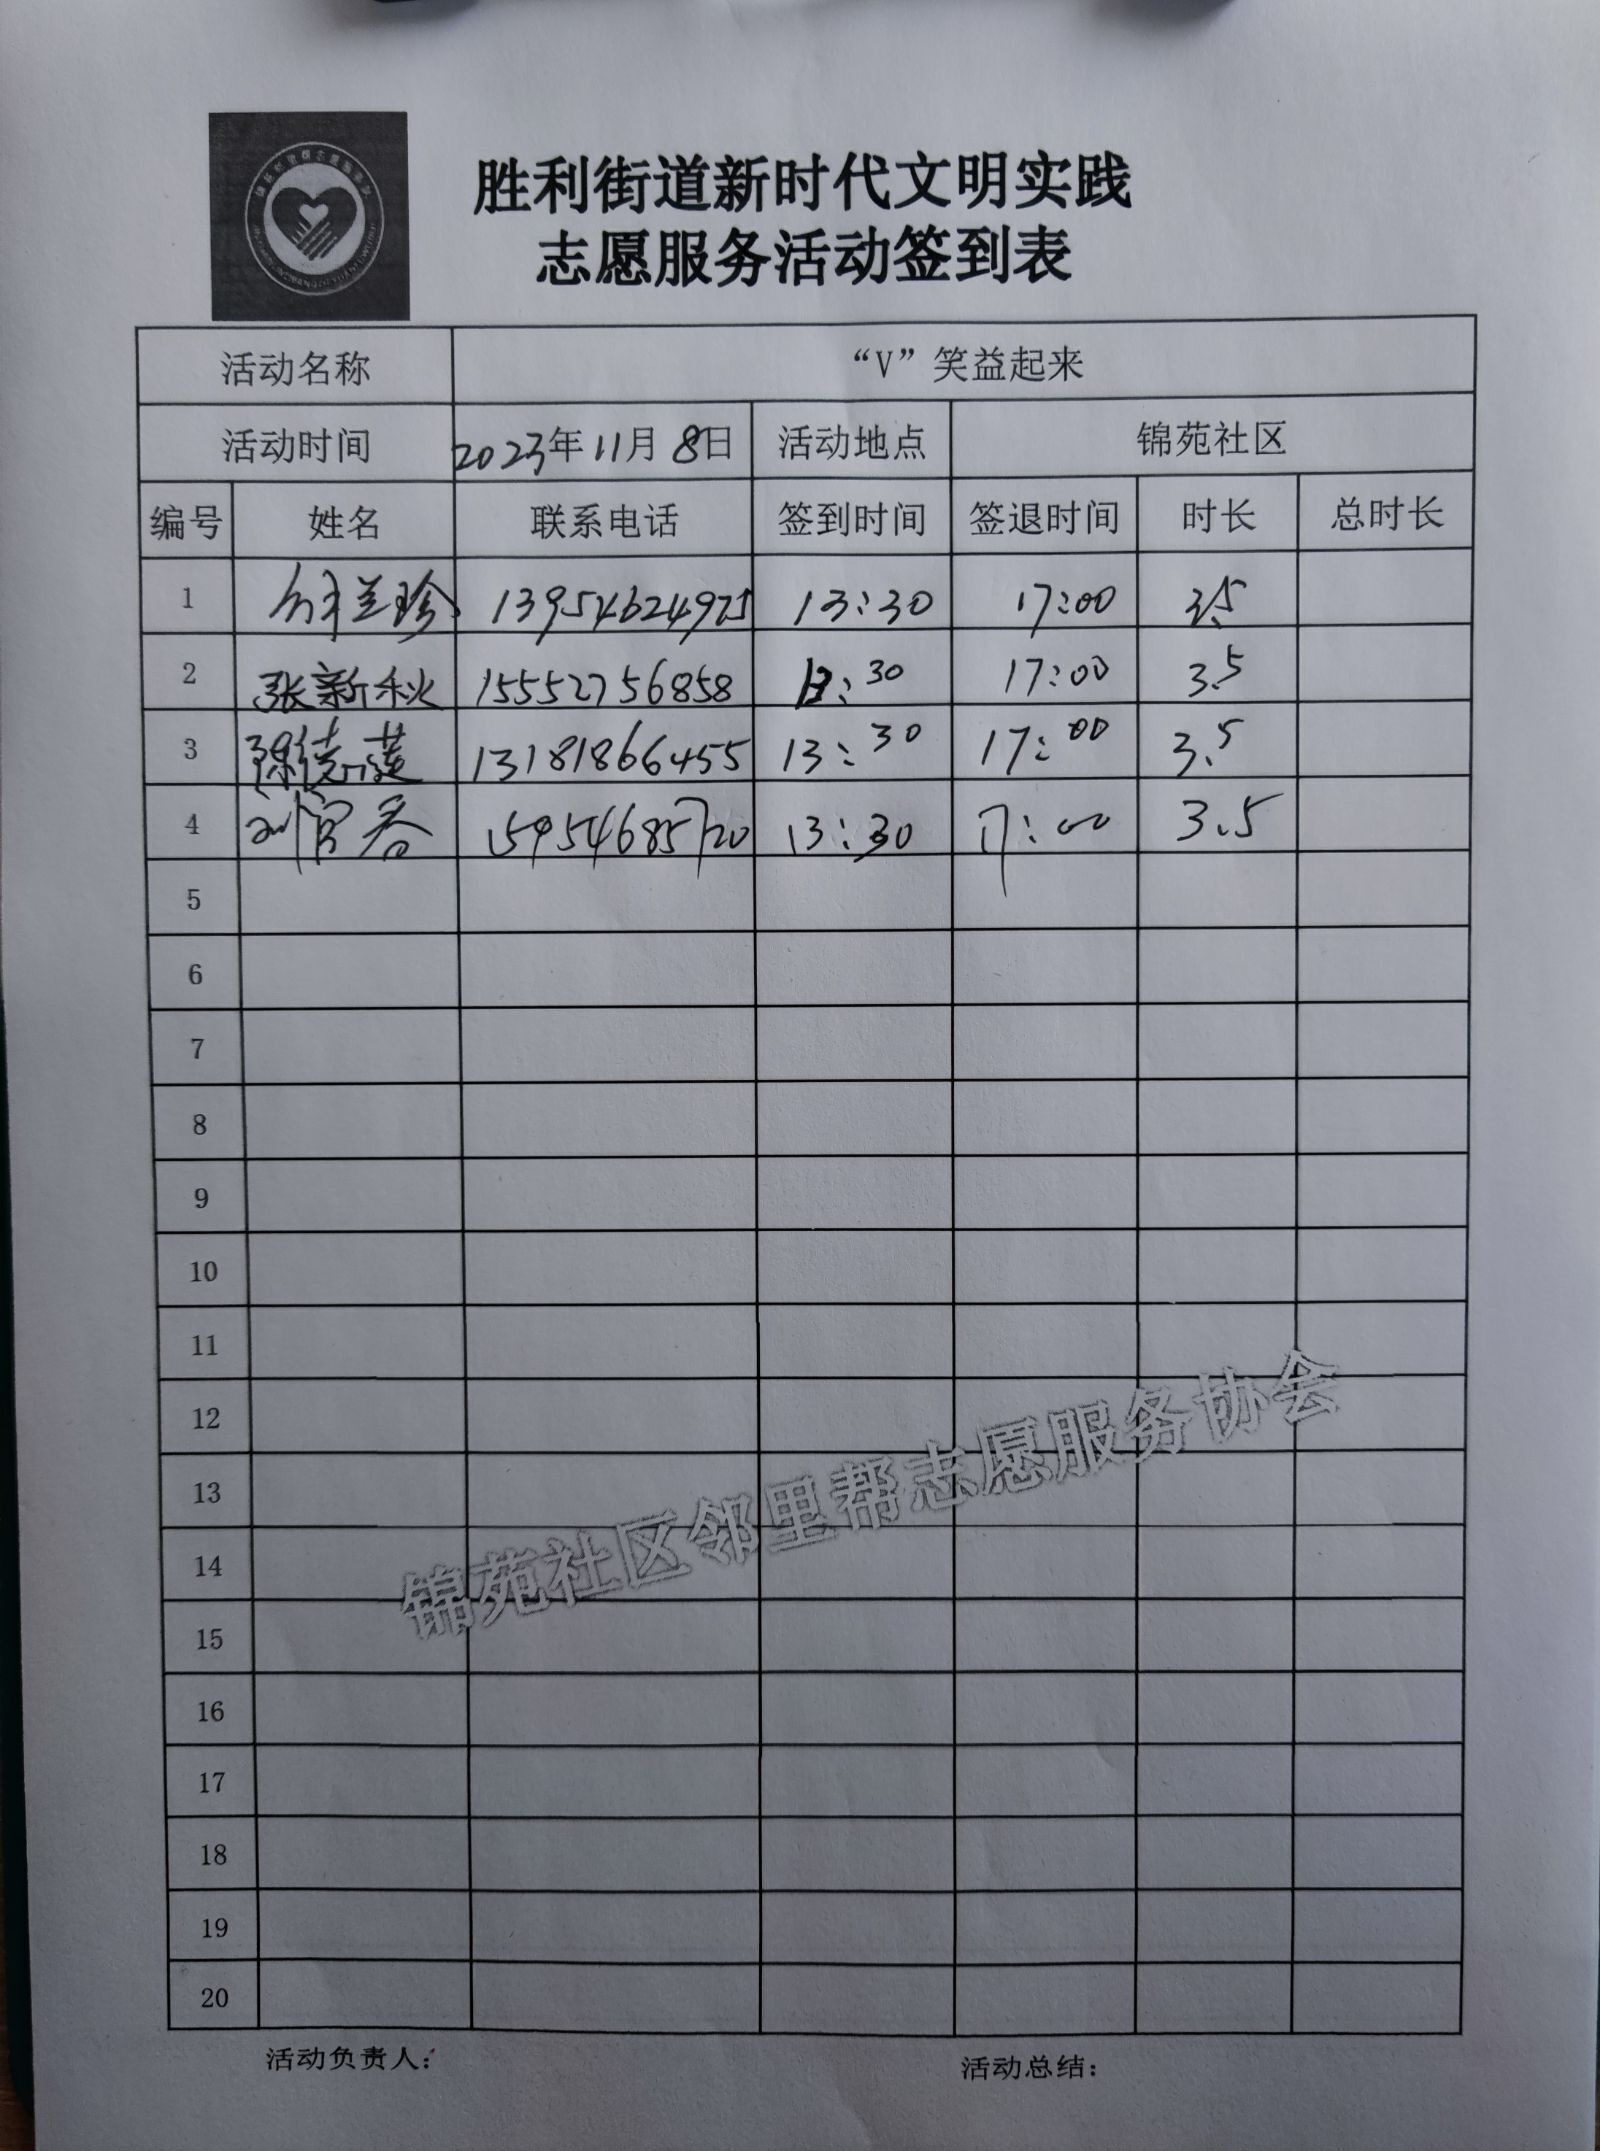 胜利街道新时代文明实践
志愿服务活动签到表
活动名称 “V”笑益起来
活动时间 2023年11月8日 活动地点 锦苑社区
编号 姓名 联系电话 签到时间 签退时间 时长 总时长
1 兰珍 13954624975 13:30 17:00 3.5
2 张新秋 15552756858 13:30 17:00 3.5
3 13181866455 13:30 17:00 3.5
4 刘官春 15954685720 13:30 17:00 3.5
5
6
7
8
9
10
11
12
13
14
15
16
17
18
19
20
锦苑社区邻里帮志愿服务协会
活动负责人：
活动总结：